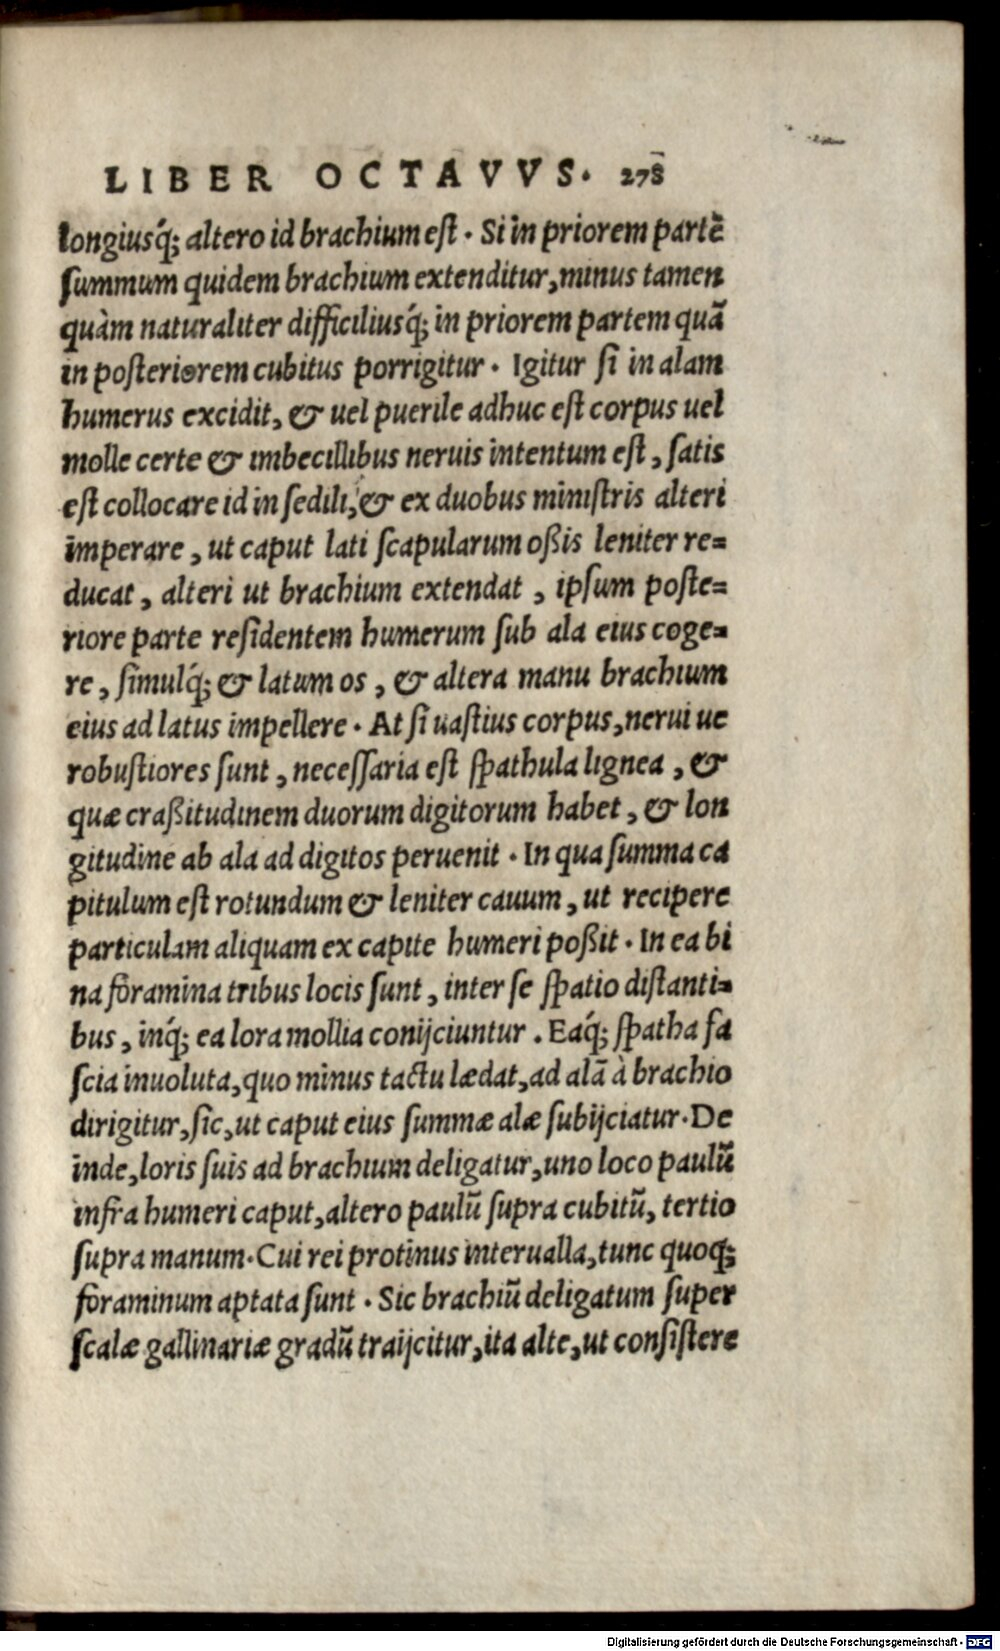 LIBER OCTAVVS. 278
longiusq́; altero id brachium est. Si in priorem partē
summum quidem brachium extenditur, minus tamen
quàm naturaliter difficiliusq́; in priorem partem quā
in posteriorem cubitus porrigitur. Igitur si in alam
humerus excidit, & uel puerile adhuc est corpus uel
molle certe & imbecillibus neruis intentum est, satis
est collocare id in sedili, & ex duobus ministris alteri
imperare, ut caput lati scapularum oßis leniter re=
ducat, alteri ut brachium extendat, ipsum poste=
riore parte residentem humerum sub ala eius coge=
re, simulq́; & latum os, & altera manu brachium
eius ad latus impellere. At si uastius corpus, nerui ue
robustiores sunt, necessaria est spathula lignea, &
quæ craßitudinem duorum digitorum habet, & lon
gitudine ab ala ad digitos peruenit. In qua summa ca
pitulum est rotundum & leniter cauum, ut recipere
particulam aliquam ex capite humeri poßit. In ea bi
na foramina tribus locis sunt, inter se spatio distanti=
bus, inq́; ea lora mollia conijciuntur. Eaq́; spatha fa
scia inuoluta, quo minus tactu lædat, ad alā à brachio
dirigitur, sic, ut caput eius summæ alæ subijciatur. De
inde, loris suis ad brachium deligatur, uno loco paulū
infra humeri caput, altero paulū supra cubitū, tertio
supra manum. Cui rei protinus interualla, tunc quoq;
foraminum aptata sunt. Sic brachiū deligatum super
scalæ gallinariæ gradū traijcitur, ita alte, ut consistere
Digitalisierung gefördert durch die Deutsche Forschungsgemeinschaft - DFG